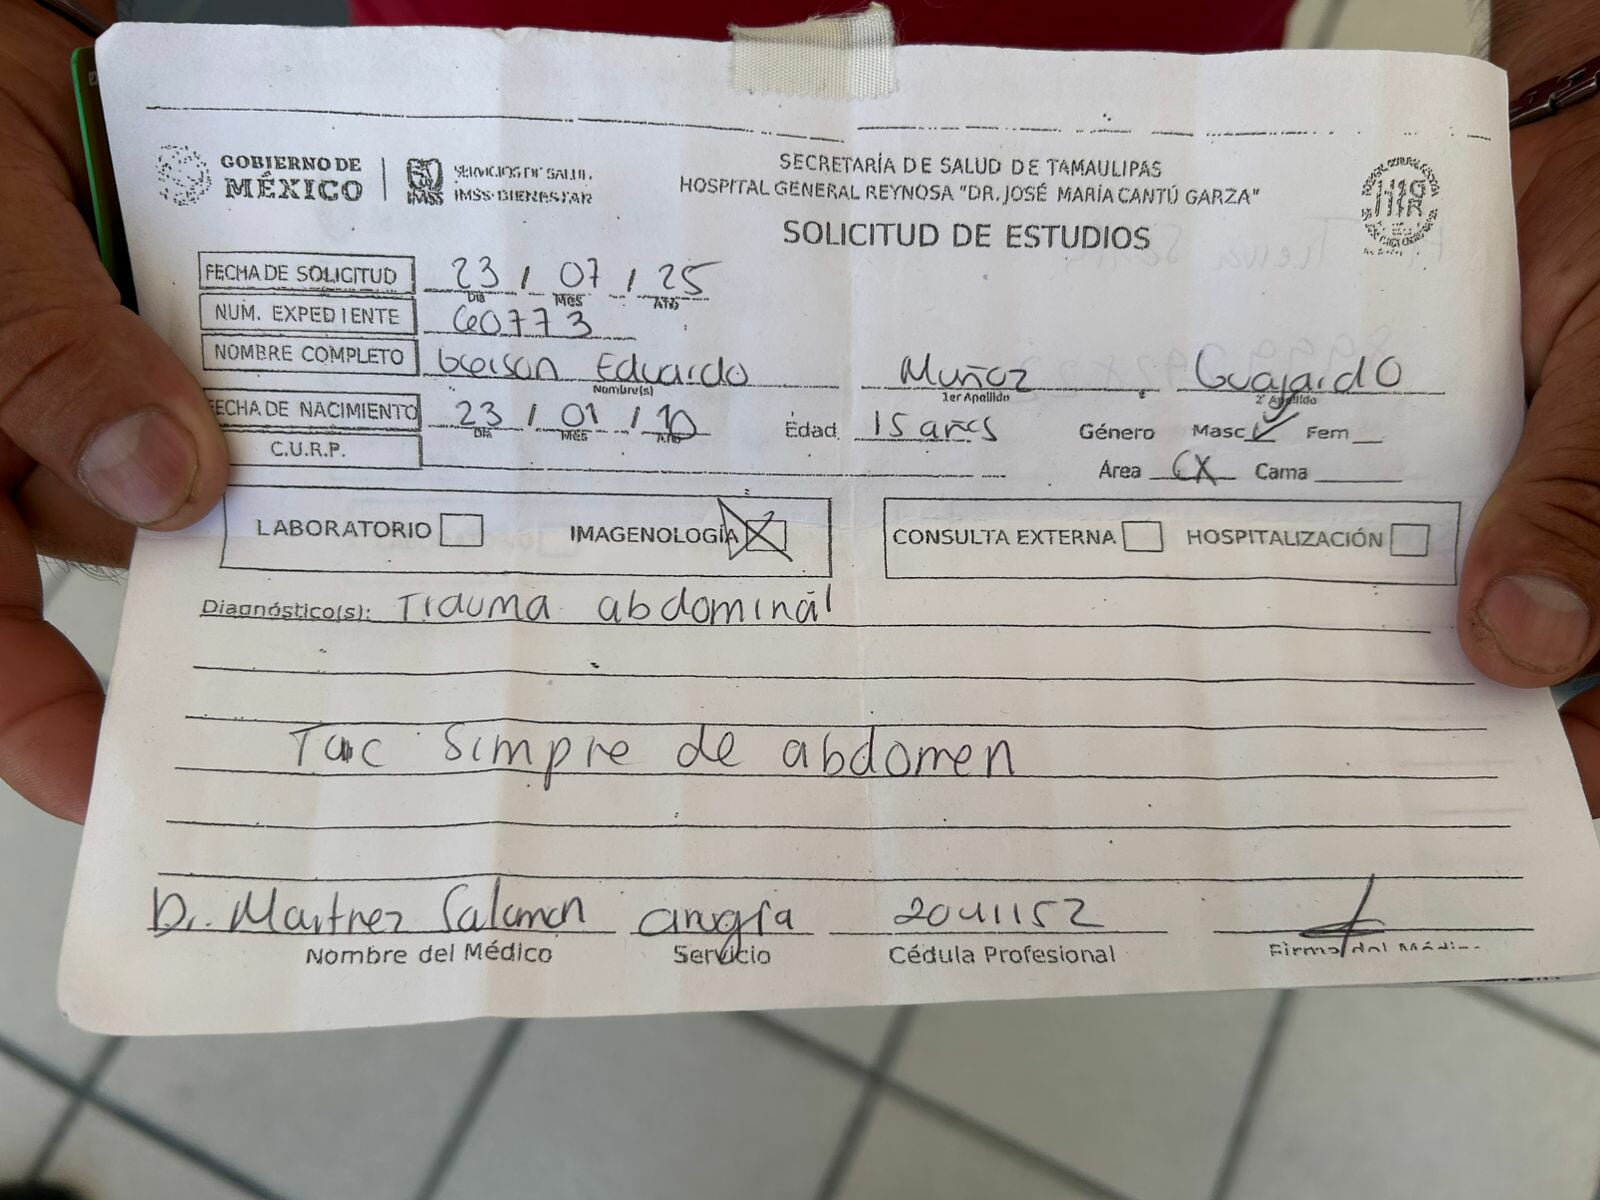 GOBIERNO DE MÉXICO
IMSS
SERVICIOS DE SALUD
IMSS-BIENESTAR
SECRETARÍA DE SALUD DE TAMAULIPAS
HOSPITAL GENERAL REYNOSA "DR. JOSÉ MARÍA CANTÚ GARZA"
SOLICITUD DE ESTUDIOS
FECHA DE SOLICITUD 23 / 07 / 25
DIA MES AÑO
NUM. EXPEDIENTE 60773
NOMBRE COMPLETO Geison Eduardo Muñoz Guajardo
Nombre(s) 1er Apellido 2º Apellido
FECHA DE NACIMIENTO 23 / 01 / 10 Edad 15 años Género Masc ✓ Fem
DIA MES AÑO
C.U.R.P. Área CX Cama
LABORATORIO IMAGENOLOGÍA X CONSULTA EXTERNA HOSPITALIZACIÓN
Diagnóstico(s): Trauma abdominal
Tac Simpre de abdomen
Dr. Martnez Salaman cirugía 2041152
Nombre del Médico Servicio Cédula Profesional Firma del Médico